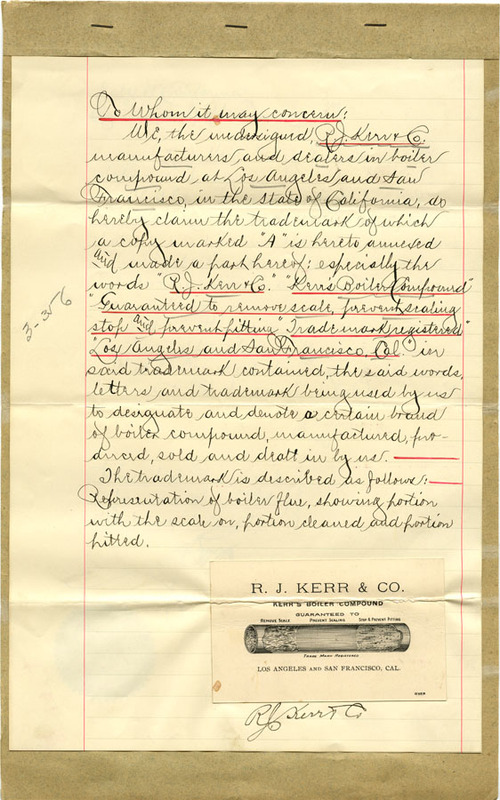 To Whom it may concern:
WE, the undersigned, R. J. Kerr & Co.
manufacturers and dealers in boiler
compound at Los Angeles and San
Francisco, in the state of California, do
hereby claim the trademark of which
a copy marked "A" is hereto annexed
and made a part hereof: especially the
words "R. J. Kerr & Co." "Kerr's Boiler Compound"
"Guaranteed to remove scale, prevent scaling
stop and prevent pitting" "Trade mark registered"
"Los Angeles and San Francisco, Cal." in
said trademark contained, the said words,
letters and trademark being used by us
to designate and denote a certain brand
of boiler compound, manufactured, pro-
duced, sold and dealt in by us.
The trademark is described as follows:
Representation of boiler flue, showing portion
with the scale on, portion cleaned and portion
pitted.
3-356
R. J. KERR & CO.
KERR'S BOILER COMPOUND
GUARANTEED TO
REMOVE SCALE PREVENT SCALING STOP & PREVENT PITTING
TRADE MARK REGISTERED
LOS ANGELES AND SAN FRANCISCO, CAL.
R J Kerr & Co